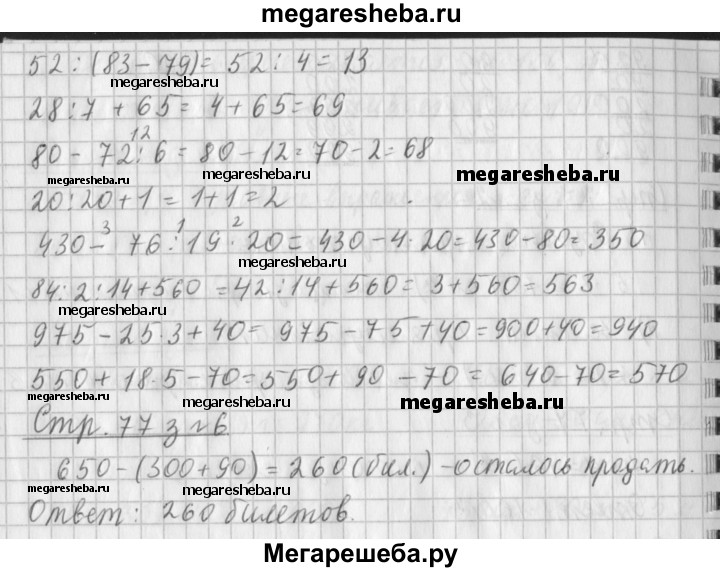 megaresheba.ru
52 : (83 - 79) = 52 : 4 = 13
megaresheba.ru
28 : 7 + 65 = 4 + 65 = 69
12
80 - 72 : 6 = 80 - 12 = 70 - 2 = 68
megaresheba.ru megaresheba.ru megaresheba.ru
20 : 20 + 1 = 1 + 1 = 2
3 1 2
430 - 76 : 19 · 20 = 430 - 4 · 20 = 430 - 80 = 350
megaresheba.ru
84 : 2 : 14 + 560 = 42 : 14 + 560 = 3 + 560 = 563
megaresheba.ru megaresheba.ru
975 - 25 · 3 + 40 = 975 - 75 + 40 = 900 + 40 = 940
550 + 18 · 5 - 70 = 550 + 90 - 70 = 640 - 70 = 570
megaresheba.ru megaresheba.ru megaresheba.ru
Стр. 77 з №6
650 - (300 + 90) = 260 (бил.) - осталось продать.
megaresheba.ru megaresheba.ru megaresheba.ru
Ответ: 260 билетов.
Мегарешеба.ру